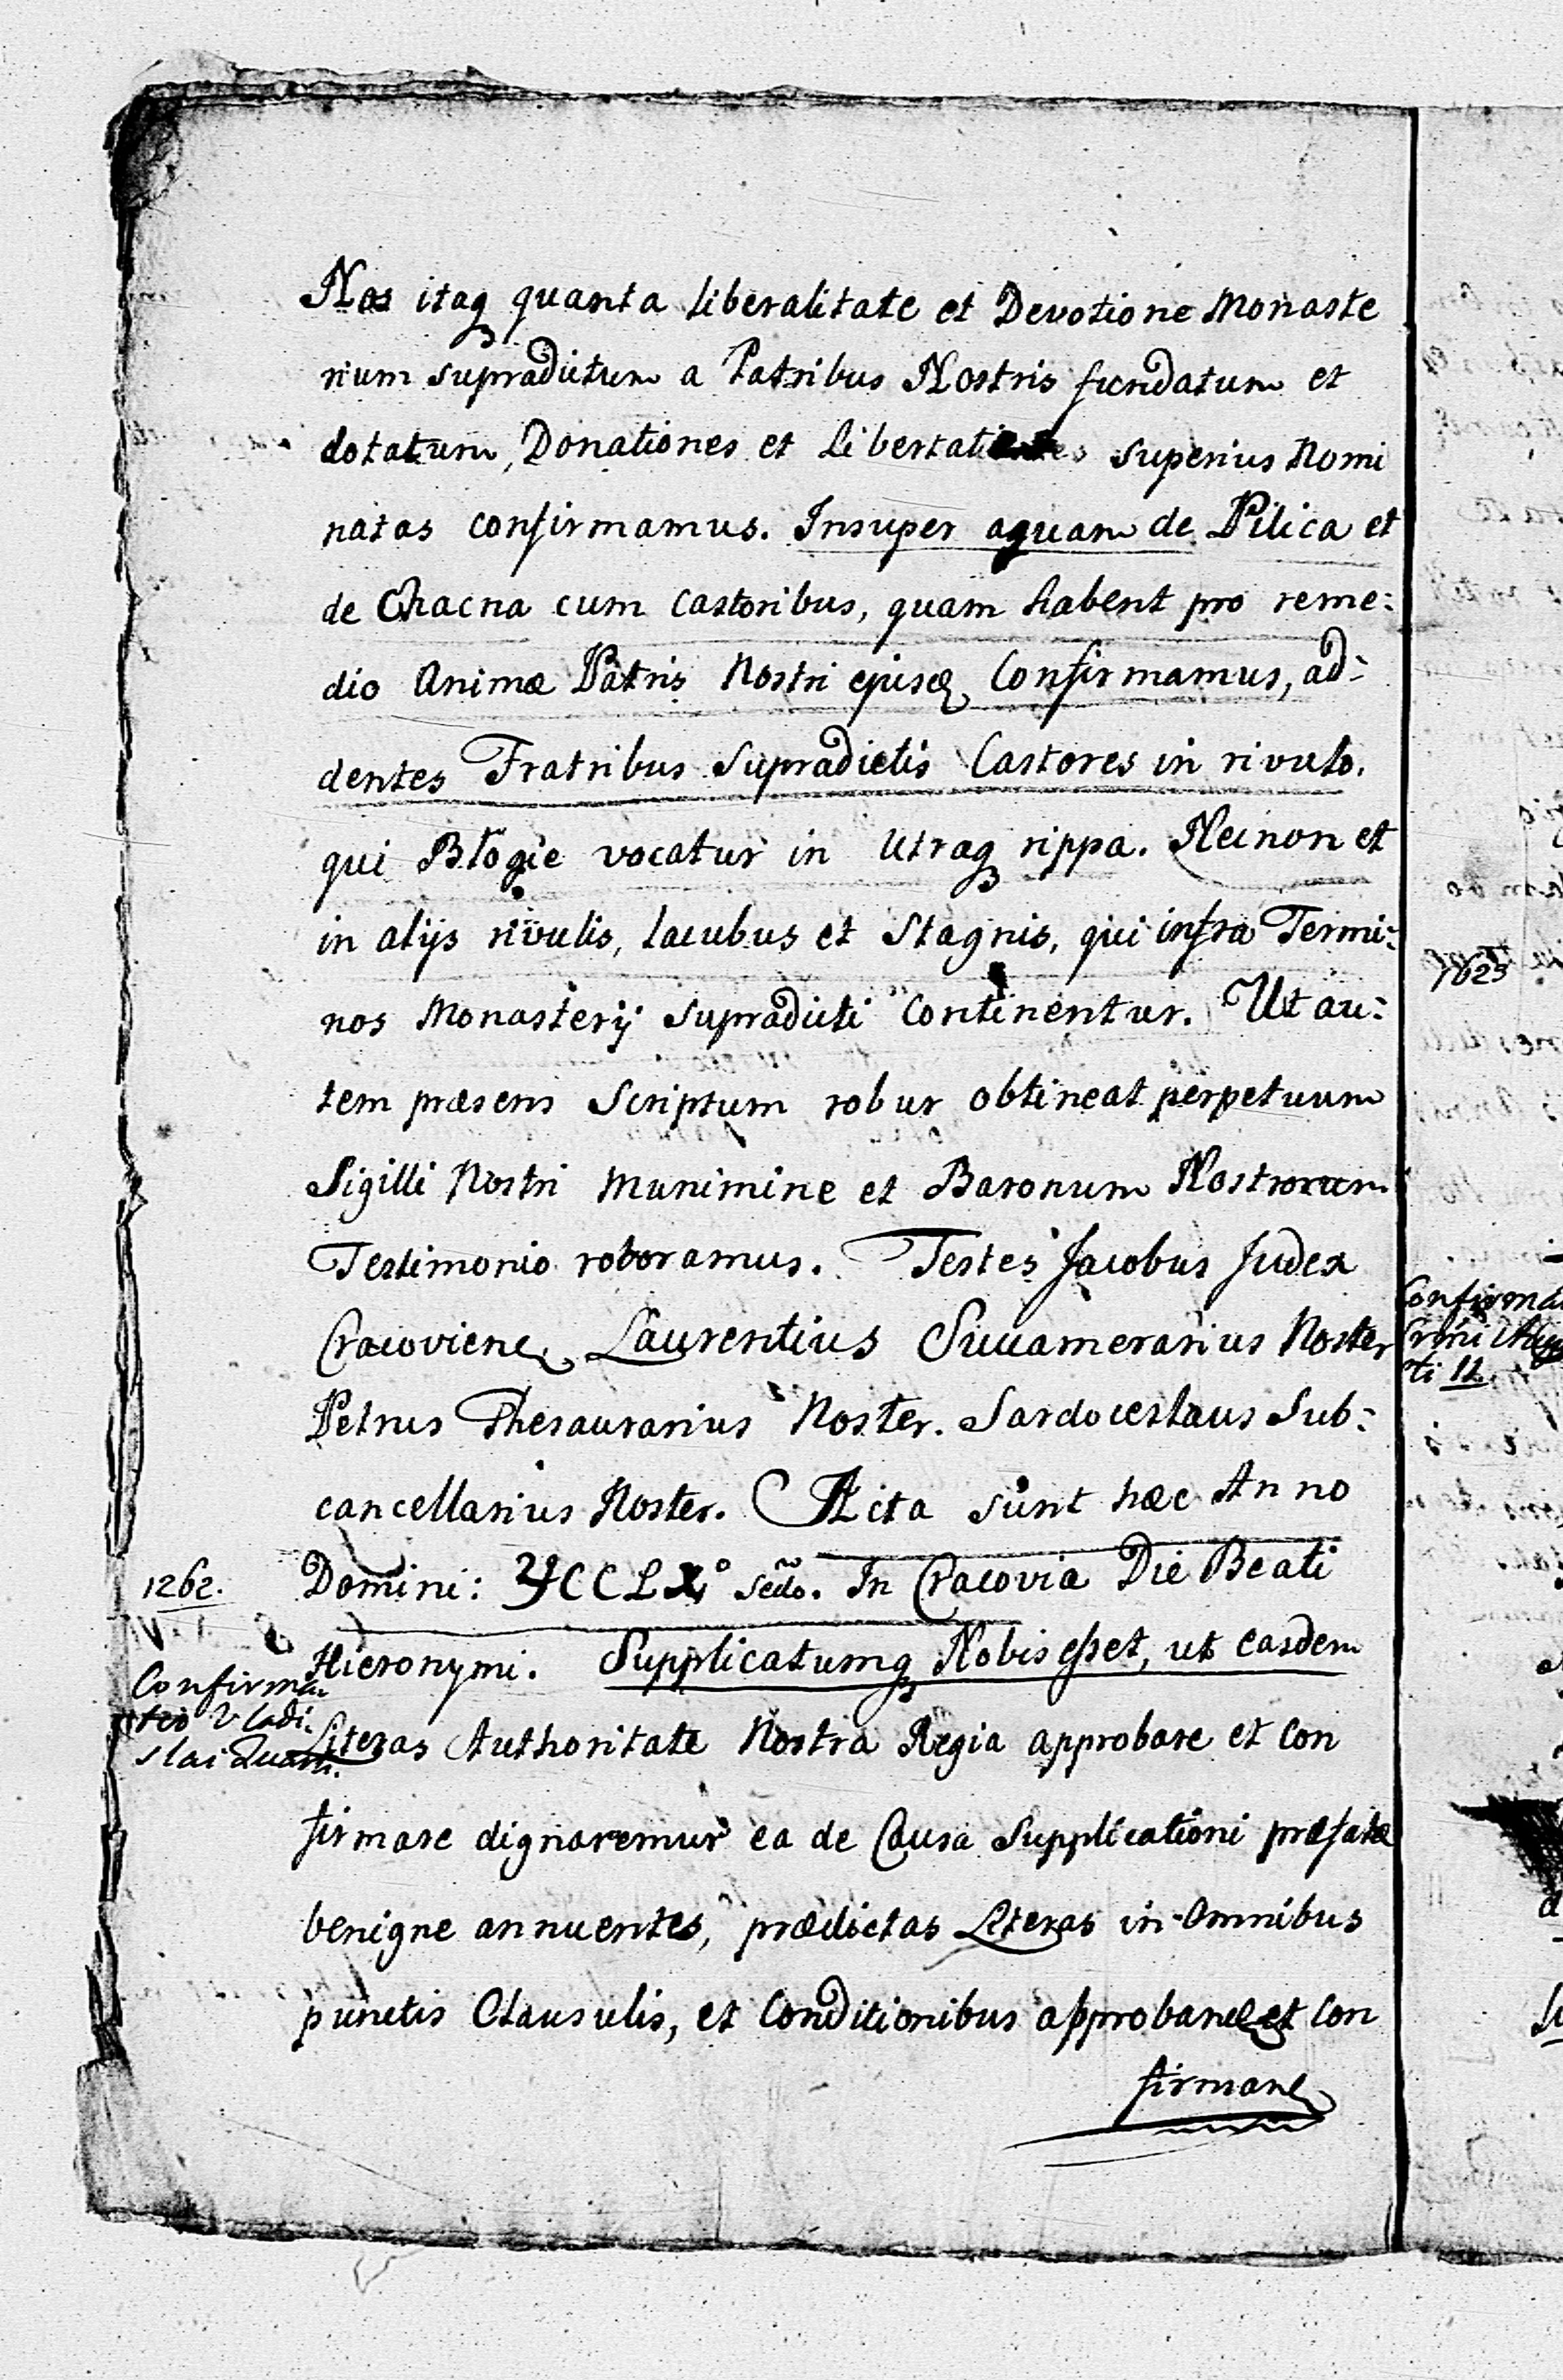 Nos itaq quanta liberalitate et Devotione Monaste
rium supradictum a Patribus Nostris fundatum et
dotatum, Donationes et Libertates superius Nomi
natas confirmamus. Insuper aquam de Pilica et
de Chacna cum Castoribus, quam habent pro reme:
dio Animæ Patris Nostri ejusq Confirmamus, ad:
dentes Fratribus Supradictis Castores in rivulo,
qui Błogie vocatur in utraq rippa. Necnon et
in alijs rivulis, lacubus et Stagnis, qui infra Termi:
nos Monasterij supradicti continentur. Ut au:
tem præsens Scriptum robur obtineat perpetuum
Sigilli Nostri munimine et Baronum Nostrorum
Testimonio roboramus. Testes Jacobus Judex
Cracovien, Laurentius Succamerarius Noster
Petrus Thesaurarius Noster. Sardoceslaus Sub:
cancellarius Noster. Acta sunt hæc Anno
1262.
Domini: MCCLX° Scdo. In Cracovia Die Beati
Hieronymi. Supplicatumq Nobis esset, ut easdem
Confirma
tio Vladi
slai Quarti.
Literas Authoritate Nostra Regia approbare et con
firmare dignaremur ea de Causa Supplicationi præfatæ
benigne annuentes, prædictas Literas in Omnibus
punctis Clausulis, et Conditionibus approband et con
firmand
1623
Confirma
ti II.